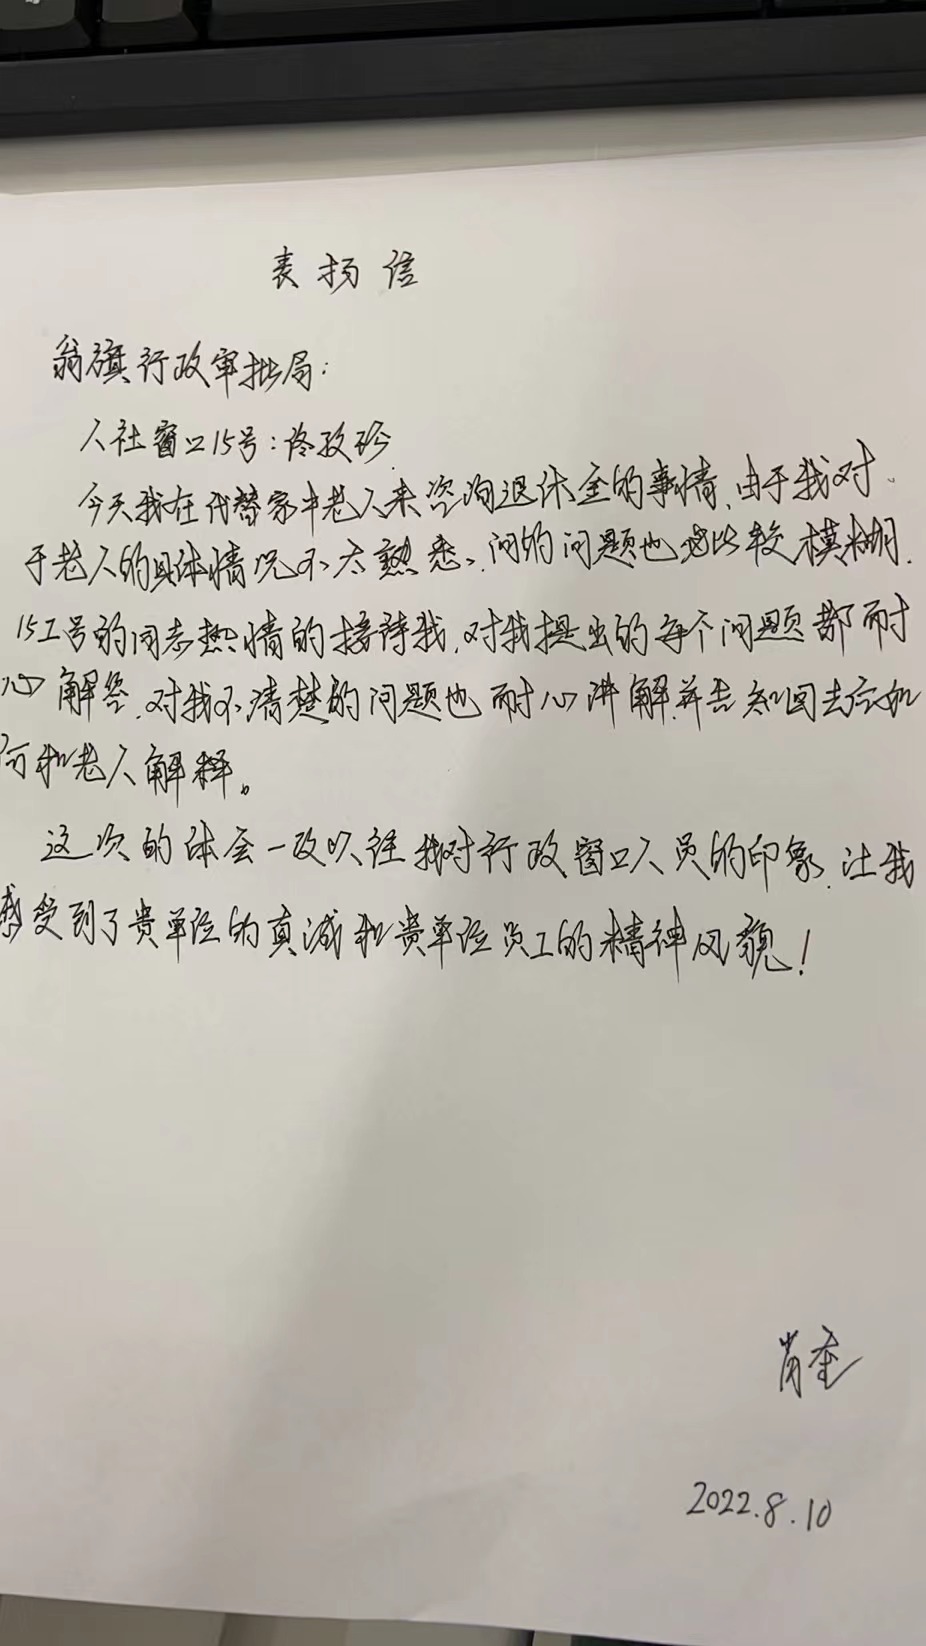 表扬信
翁旗行政审批局:
人社窗口15号:佟孜珍
今天我在代替家中老人来咨询退休金的事情,由于我对
于老人的具体情况不太熟悉、,问的问题也比较模糊.
15工号的同志热情的接待我,对我提出的每个问题都耐
心解答,对我不清楚的问题也耐心讲解并告知回去后如
何和老人解释。
这次的体会一改以往我对行政窗口人员的印象,让我
感受到了贵单位的真诚和贵单位员工的精神风貌!
肖奎
2022.8.10